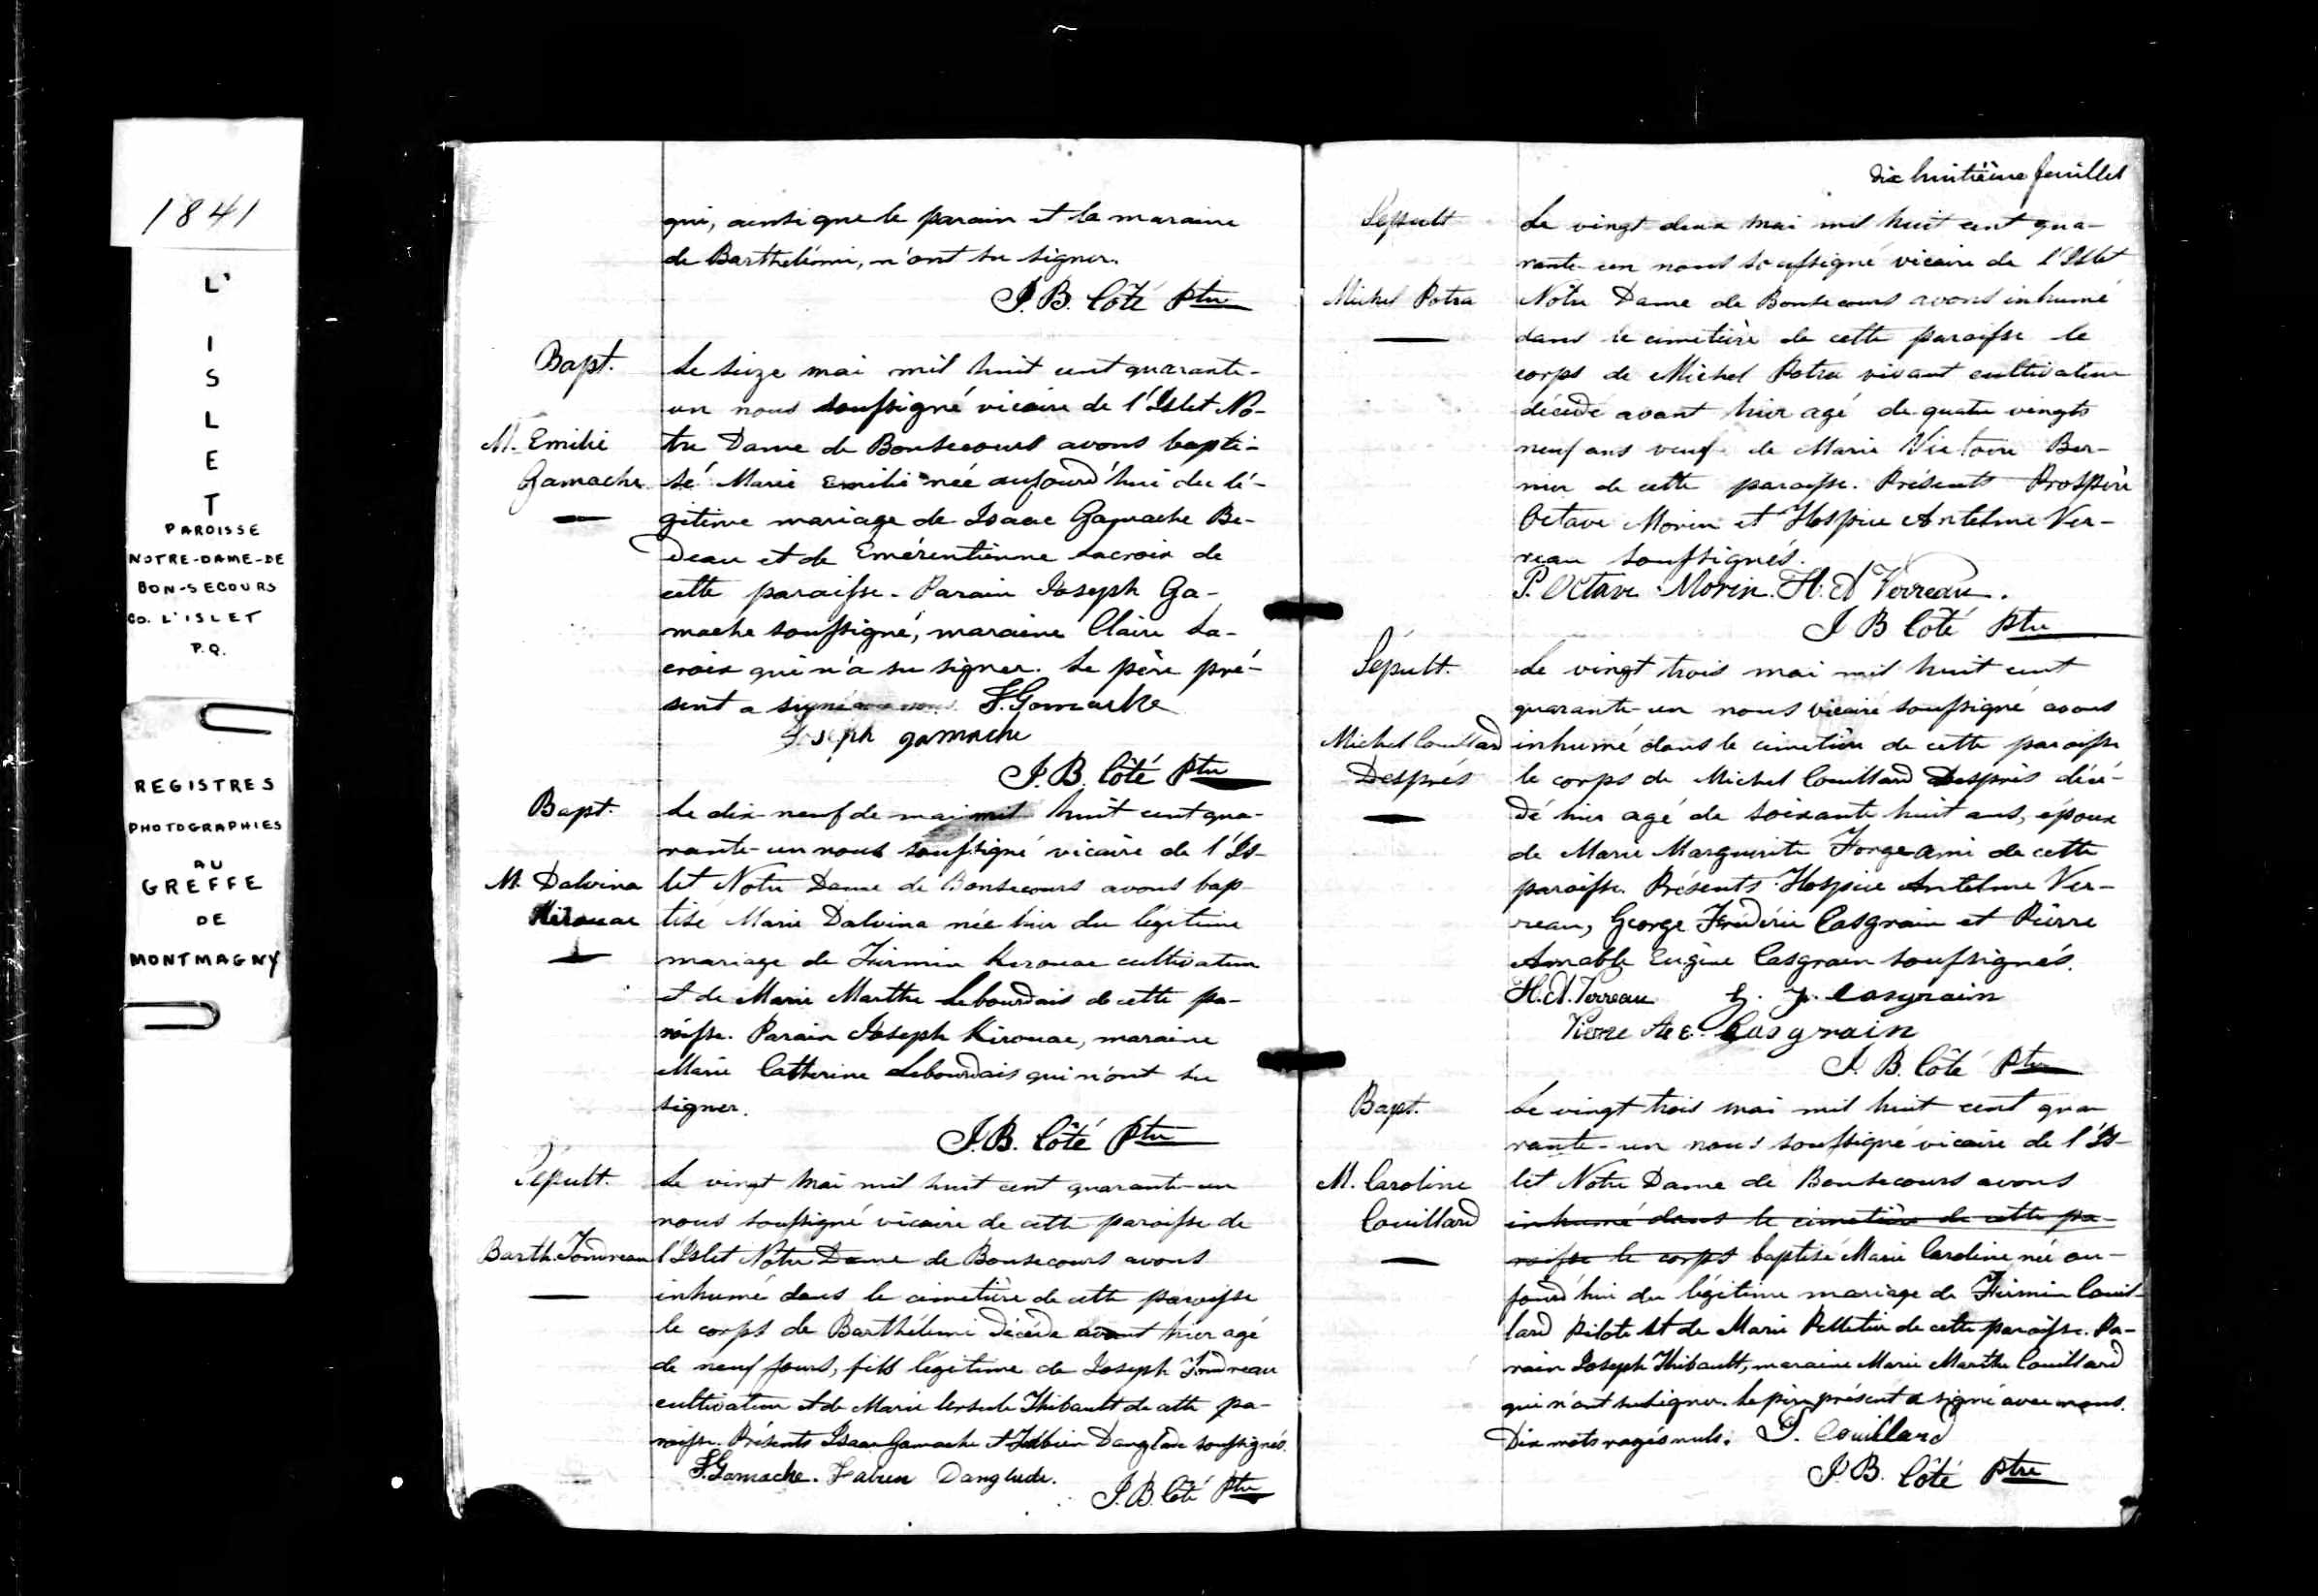 1841
L'
I
S
L
E
T
PAROISSE
NOTRE-DAME-DE
BON-SECOURS
CO. L'ISLET
P.Q.
REGISTRES
PHOTOGRAPHIES
AU
GREFFE
DE
MONTMAGNY
qui, ainsi que le parain et la maraine
de Barthélémi, n'ont su signer.
J. B. Côté Ptre
Bapt.
M. Emilie
Gamache
Le seize mai mil huit cent quarante-
un nous soussigné vicaire de l'Islet No-
tre Dame de Bonsecours avons bapti-
sé Marie Emilie née aujourd'hui du lé-
gitime mariage de Isaac Gamache Be-
deau et de Emérentienne Lacroix de
cette paroisse. Parain Joseph Ga-
mache soussigné, maraine Claire La-
croix qui n'a su signer. Le père pré-
sent a signé avec nous. I. Gamache
Joseph gamache
J. B. Côté Ptre
Bapt.
M. Dalvina
Kirouac
Le dix-neuf de mai mil huit cent qua-
rante-un nous soussigné vicaire de l'Is-
let Notre Dame de Bonsecours avons bap-
tisé Marie Dalvina née hier du légitime
mariage de Firmin Kirouac cultivateur
et de Marie Marthe Lebourdais de cette pa-
roisse. Parain Joseph Kirouac, maraine
Marie Catherine Lebourdais qui n'ont su
signer.
J. B. Côté Ptre
Sépult.
Barth. Fondreau
Le vingt mai mil huit cent quarante-un
nous soussigné vicaire de cette paroisse de
l'Islet Notre Dame de Bonsecours avons
inhumé dans le cimetière de cette paroisse
le corps de Barthélemi décédé avant hier agé
de neuf jours, fils légitime de Joseph Fondreau
cultivateur et de Marie Ursule Thibault de cette pa-
roisse. Présents Isaac Gamache et Fabien Danglade soussignés.
I. Gamache. Fabien Danglude.
J. B. Côté Ptre
dix huitième feuillet
Sépult
Michel Potra
Le vingt deux mai mil huit cent qua-
rante-un nous soussigné vicaire de l'Islet
Notre Dame de Bonsecours avons inhumé
dans le cimetière de cette paroisse le
corps de Michel Potra vivant cultivateur
décédé avant hier agé de quatre vingts
neuf ans veuf de Marie Victoire Ber-
nier de cette paroisse. Présents Prospère
Octave Morin et Hospice Antelme Ver-
reau soussignés.
P. Octave Morin. H. A Verreau.
J B Côté Ptre
Sépult.
Michel Couillard
Després
Le vingt trois mai mil huit cent
quarante-un nous vicaire soussigné avons
inhumé dans le cimetière de cette paroisse
le corps de Michel Couillard Després décé-
dé hier agé de soixante huit ans, époux
de Marie Marguerite Forgeami de cette
paroisse. Présents Hospice Antelme Ver-
reau, George Frédéric Casgrain et Pierre
Amable Eugène Casgrain soussignés.
H. A. Verreau G. F. Casgrain
Pierre A. E. Casgrain
J. B. Côté Ptre
Bapt.
M. Caroline
Couillard
Le vingt trois mai mil huit cent qua
rante-un nous soussigné vicaire de l'Is-
let Notre Dame de Bonsecours avons
inhumé dans le cimetière de cette pa-
roisse le corps baptisé Marie Caroline née au-
jourd'hui du légitime mariage de Firmin Couil-
lard Pilote et de Marie Pelletier de cette paroisse. Pa-
rain Joseph Thibault, maraine Marie Marthe Couillard
qui n'ont su signer. Le père présent a signé avec nous.
Dix mots rayés nuls. F. Couillard
J. B. Côté Ptre